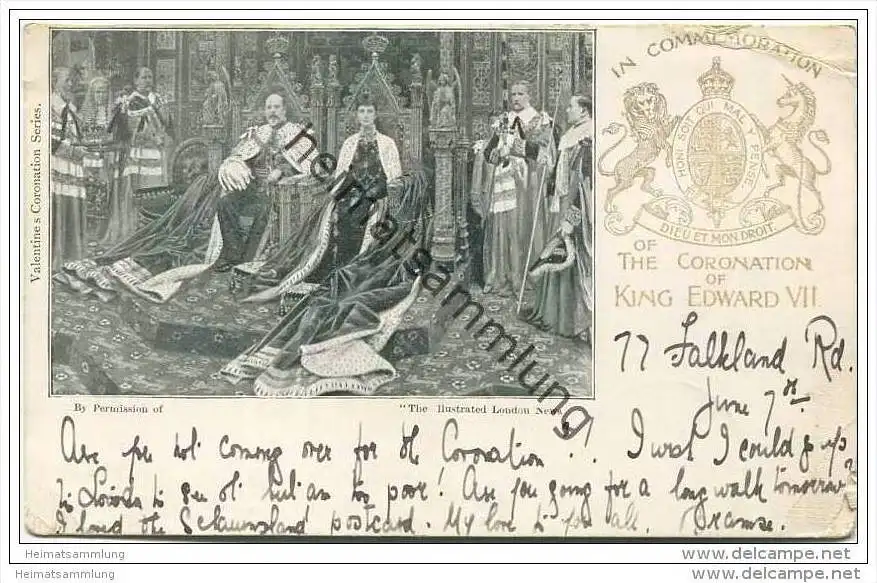 Valentine's Coronation Series.
IN COMMEMORATION
HONI SOIT QUI MAL Y PENSE
DIEU ET MON DROIT.
OF
THE CORONATION
OF
KING EDWARD VII.
By Permission of
"The Ilustrated London News"
77 Falkland Rd.
June 7th
Are you not coming over for the Coronation!! I wish I could go up
to London to see it but am too poor! Are you going for a long walk tomorrow?
I loved the postcard. My love to you all.
heimatsammlung
Heimatsammlung
www.delcampe.net
Heimatsammlung
www.delcampe.net